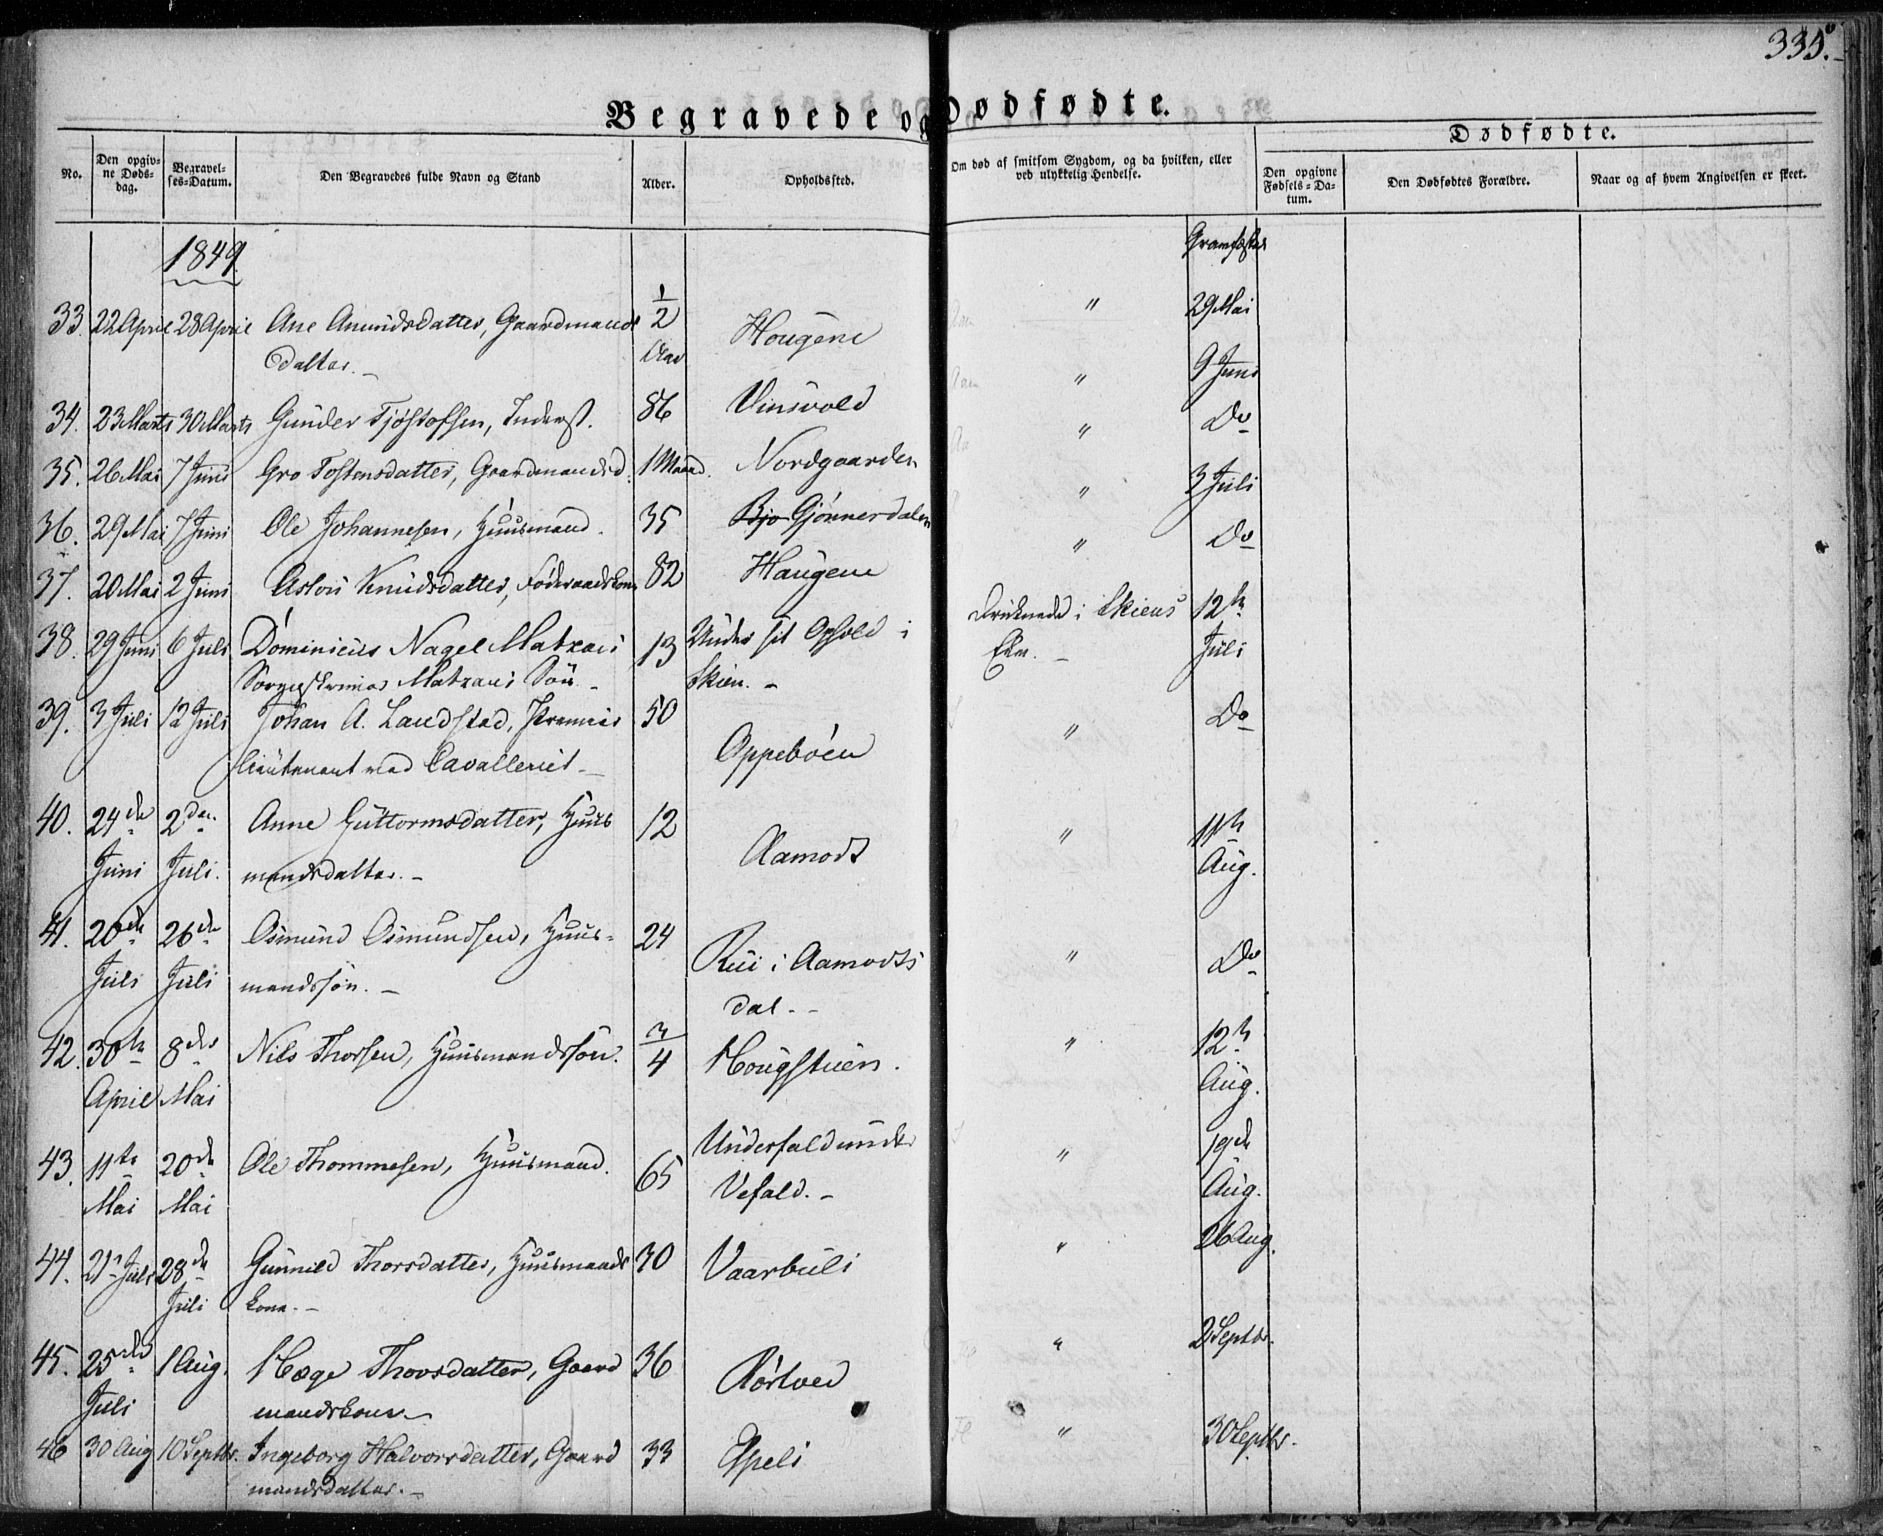 335.
Begravede og Dødfødte.
Dødfødte.
No.
Den opgiv-
ne Døds-
dag.
Begravel-
ses-Datum.
Den Begravedes fulde Navn og Stand
Alder.
Opholdssted.
Om død af smitsom Sygdom, og da hvilken, eller
ved ulykkelig Hendelse.
Den opgivne
Fødsels-Da-
tum.
Den Dødfødtes Forældre.
Naar og af hvem Angivelsen er skeet.
1849.
33. 22 April 28 April Ane Amundsdatter, Gaardmands 1/2 Hougene " 29 Mai
datter. Aar
34. 23 Marts 30 Marts Gunder Tjøstofsen, Inderst. 86 Vinsvold " 9 Juni
35. 26 Mai 7 Juni Gro Tostensdatter, Gaardmandsd. 1 Maaned. Nordgaarden " Do
36. 29 Mai 7 Juni Ole Johannesen, Huusmand. 35 Bjo Gjønnerdalen " 3 Juli
37. 20 Mai 2 Juni Aslou Knudsdatter, Føderaadskone 82 Haugene " Do
38. 29 Juni 6 Juli Dominicus Nagel Matzau 13 Under sit Ophold i Druknede i Skiens 12te
Sorenskriver Matzaus Søn. Skien. Elv. Juli
39. 3 Juli 12 Juli Johan A. Landstad, Premier 50 Oppebøen " Do
lieutenant ved Cavalleriet.
40. 24de 2den Anne Guttormsdatter, Huus 12 Aamodt " 11te
Juni Juli. mandsdatter. Aug.
41. 20de 26de Osmund Osmundsen, Huus- 24 Rui i Aamodts " Do
Juli Juli mandssøn. dal.
42. 30te 8de Nils Thorsen, Huusmandssøn. 3/4 Hougstuen. " 12te
April Mai Aug.
43. 11te 20de Ole Thommesen, Huusmand. 65 Underfald under " 19de
Mai Mai Vefald. Aug.
44. 21 Juli 28de Gunnild Thorsdatter, Huusmands 30 Vaarbuli " 26 Aug.
Juli kone.
45. 25de 1 Aug. Hæge Thovsdatter, Gaard 36 Rørtved " 2 Septbr.
Juli mandskone.
46 30 Aug 10 Septbr. Ingeborg Halvorsdatter, Gaard 33 Espeli " 30 Septbr.
mandsdatter.